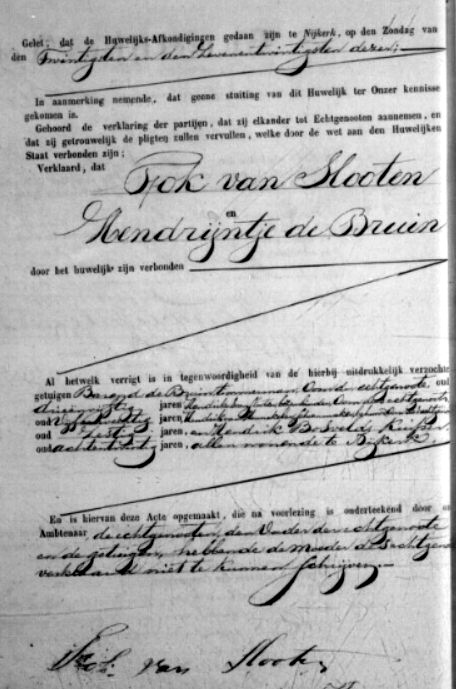 Gelet, dat de Huwelijks-Afkondigingen gedaan zijn te Nijkerk, op den Zondag van
den Twintigsten en den Zevenentwintigsten dezer;
In aanmerking nemende, dat geene stuiting van dit Huwelijk ter Onzer kennisse
gekomen is.
Gehoord de verklaring der partijen, dat zij elkander tot Echtgenooten aannemen, en
dat zij getrouwelijk de pligten zullen vervullen, welke door de wet aan den Huwelijken
Staat verbonden zijn;
Verklaard, dat
Fok van Slooten
en
Hendrijntje de Bruin
door het huwelijk zijn verbonden
Al hetwelk verrigt is in tegenwoordigheid van de hierbij uitdrukkelijk verzochte
getuigen Barend de Bruin echtgenoote, oud
jaren
oud jaren, Hendrik
oud Zestig jaren, en Hendrik Bosveld, Kuiper
oud achtentwintig jaren, allen wonende te Nijkerk.
En is hiervan deze Acte opgemaakt, die na voorlezing is onderteekend door
Ambtenaar de echtgenooten, den Vader der echtgenoote
en de getuigen, hebbende de moeder der echtgen
verklaard niet te kunnen schrijven.
Fok van Slooten